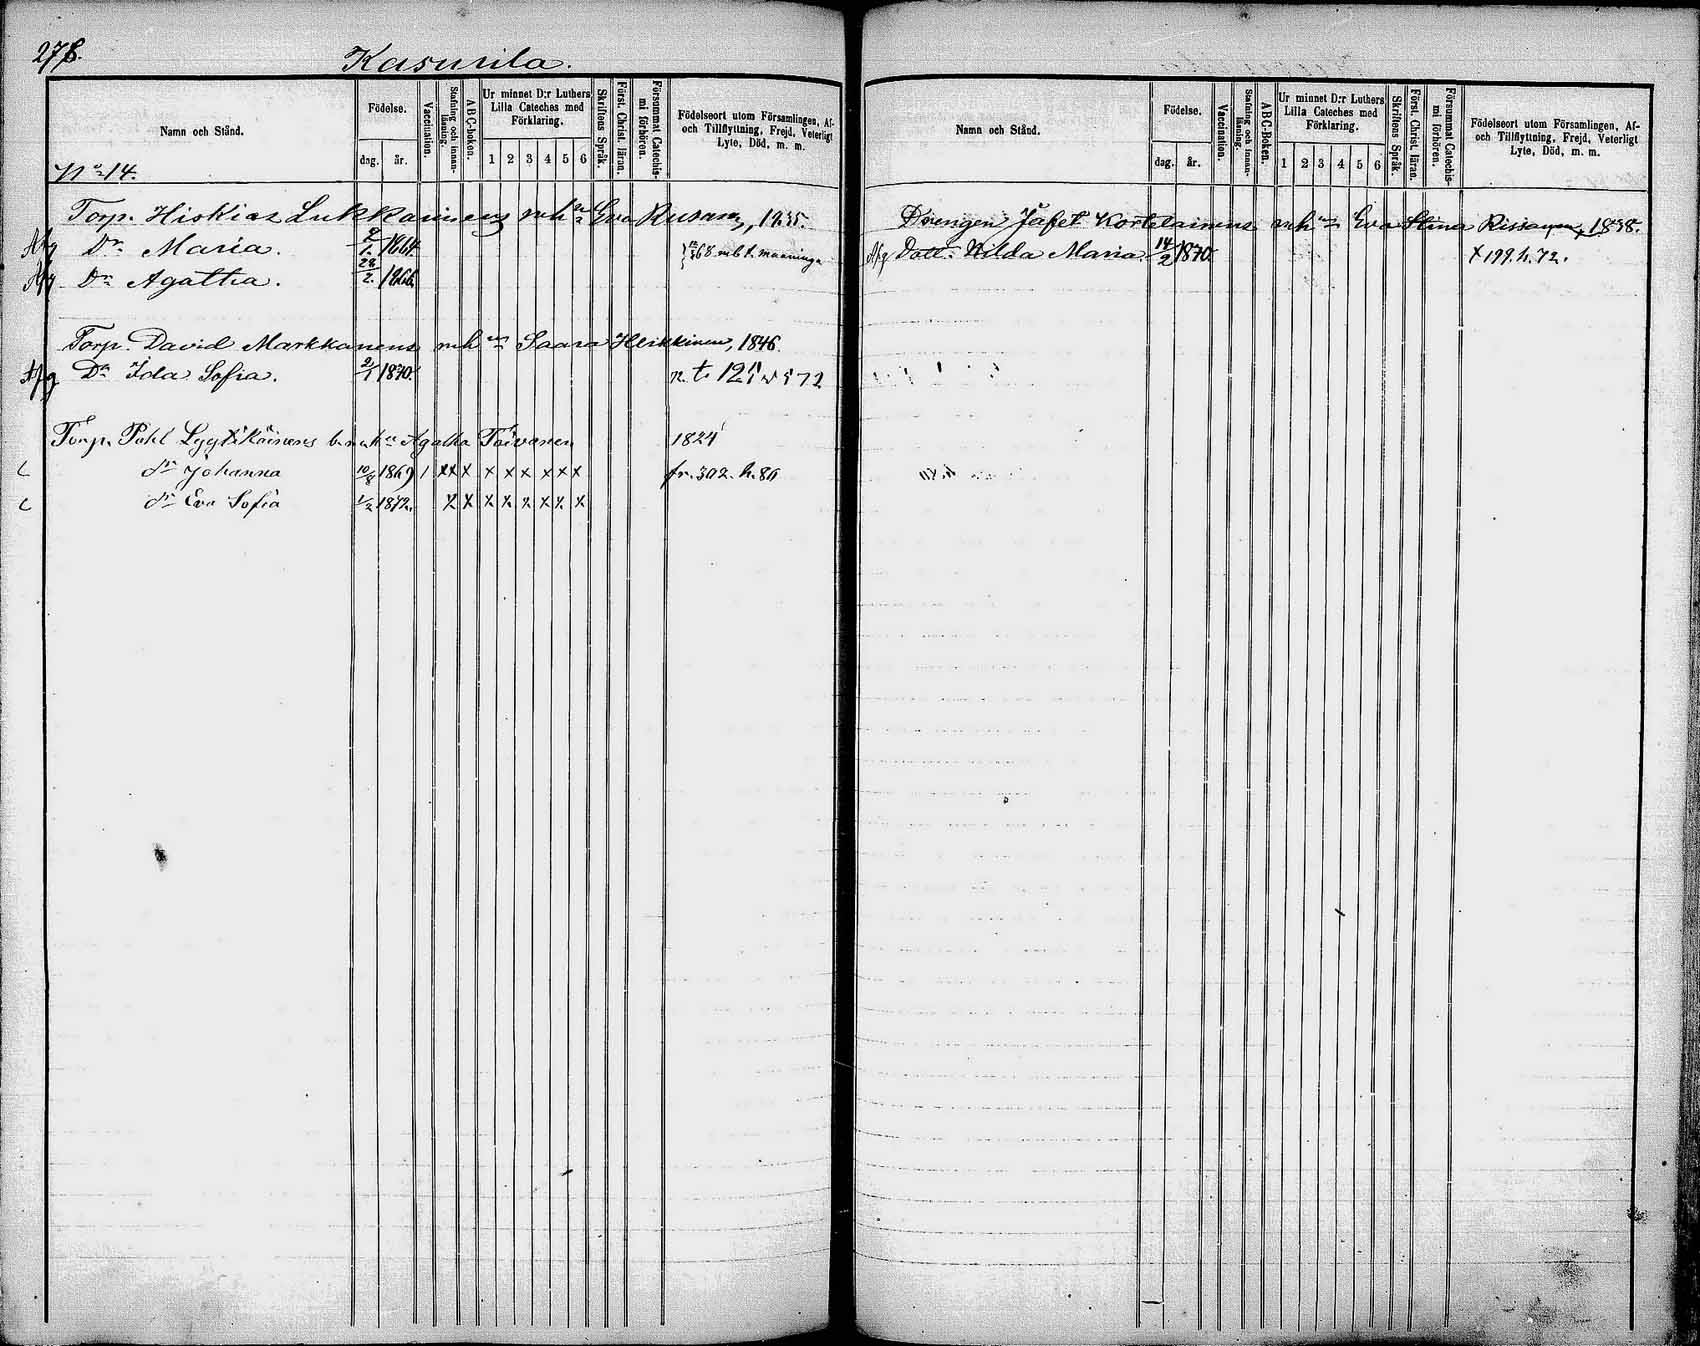 278.
Kasurila.
Namn och Stånd.
Födelse.
dag. år.
Vaccination.
Stafning och innan-läsning.
ABC-boken.
Ur minnet D:r Luthers Lilla Cateches med Förklaring.
1 2 3 4 5 6
Skriftens Språk.
Först. Christ. läran.
Försummat Catechismi förhören.
Födelseort utom Församlingen, Af- och Tillflyttning, Frejd, Veterligt Lyte, Död, m. m.
No 14.
Torp. Hiskias Lukkarinens m h n Eva 1835.
Afg Dr Maria. 1864. 68 m b t. maaninga
Afg Dr Agatha. 28/2. 1866.
Torp. David Markkanens m h n Saara Heikkinen, 1846.
Afg Dr Ida Sofia. 2/1 1870. 72
Torp. Pahl Lyytikäinens Agatha Toivanen 1824
dr Johanna 10/8 1869 / x x x x x x x x x fr. 302. h. 80
dr Eva Sofia 1/2 1872. x x x x x x x x
Namn och Stånd.
Födelse.
dag. år.
Vaccination.
Stafning och innan-läsning.
ABC-Boken.
Ur minnet D:r Luthers Lilla Cateches med Förklaring.
1 2 3 4 5 6
Skriftens Språk.
Först. Christ. läran.
Försummat Catechismi förhören.
Födelseort utom Församlingen, Af- och Tillflyttning, Frejd, Veterligt Lyte, Död, m. m.
Drengen Jafet Kortelainens m h n Eva Stina Rissanen, 1838.
Afg Dott. Hilda Maria. 14/2 1870. x 199. h. 72.